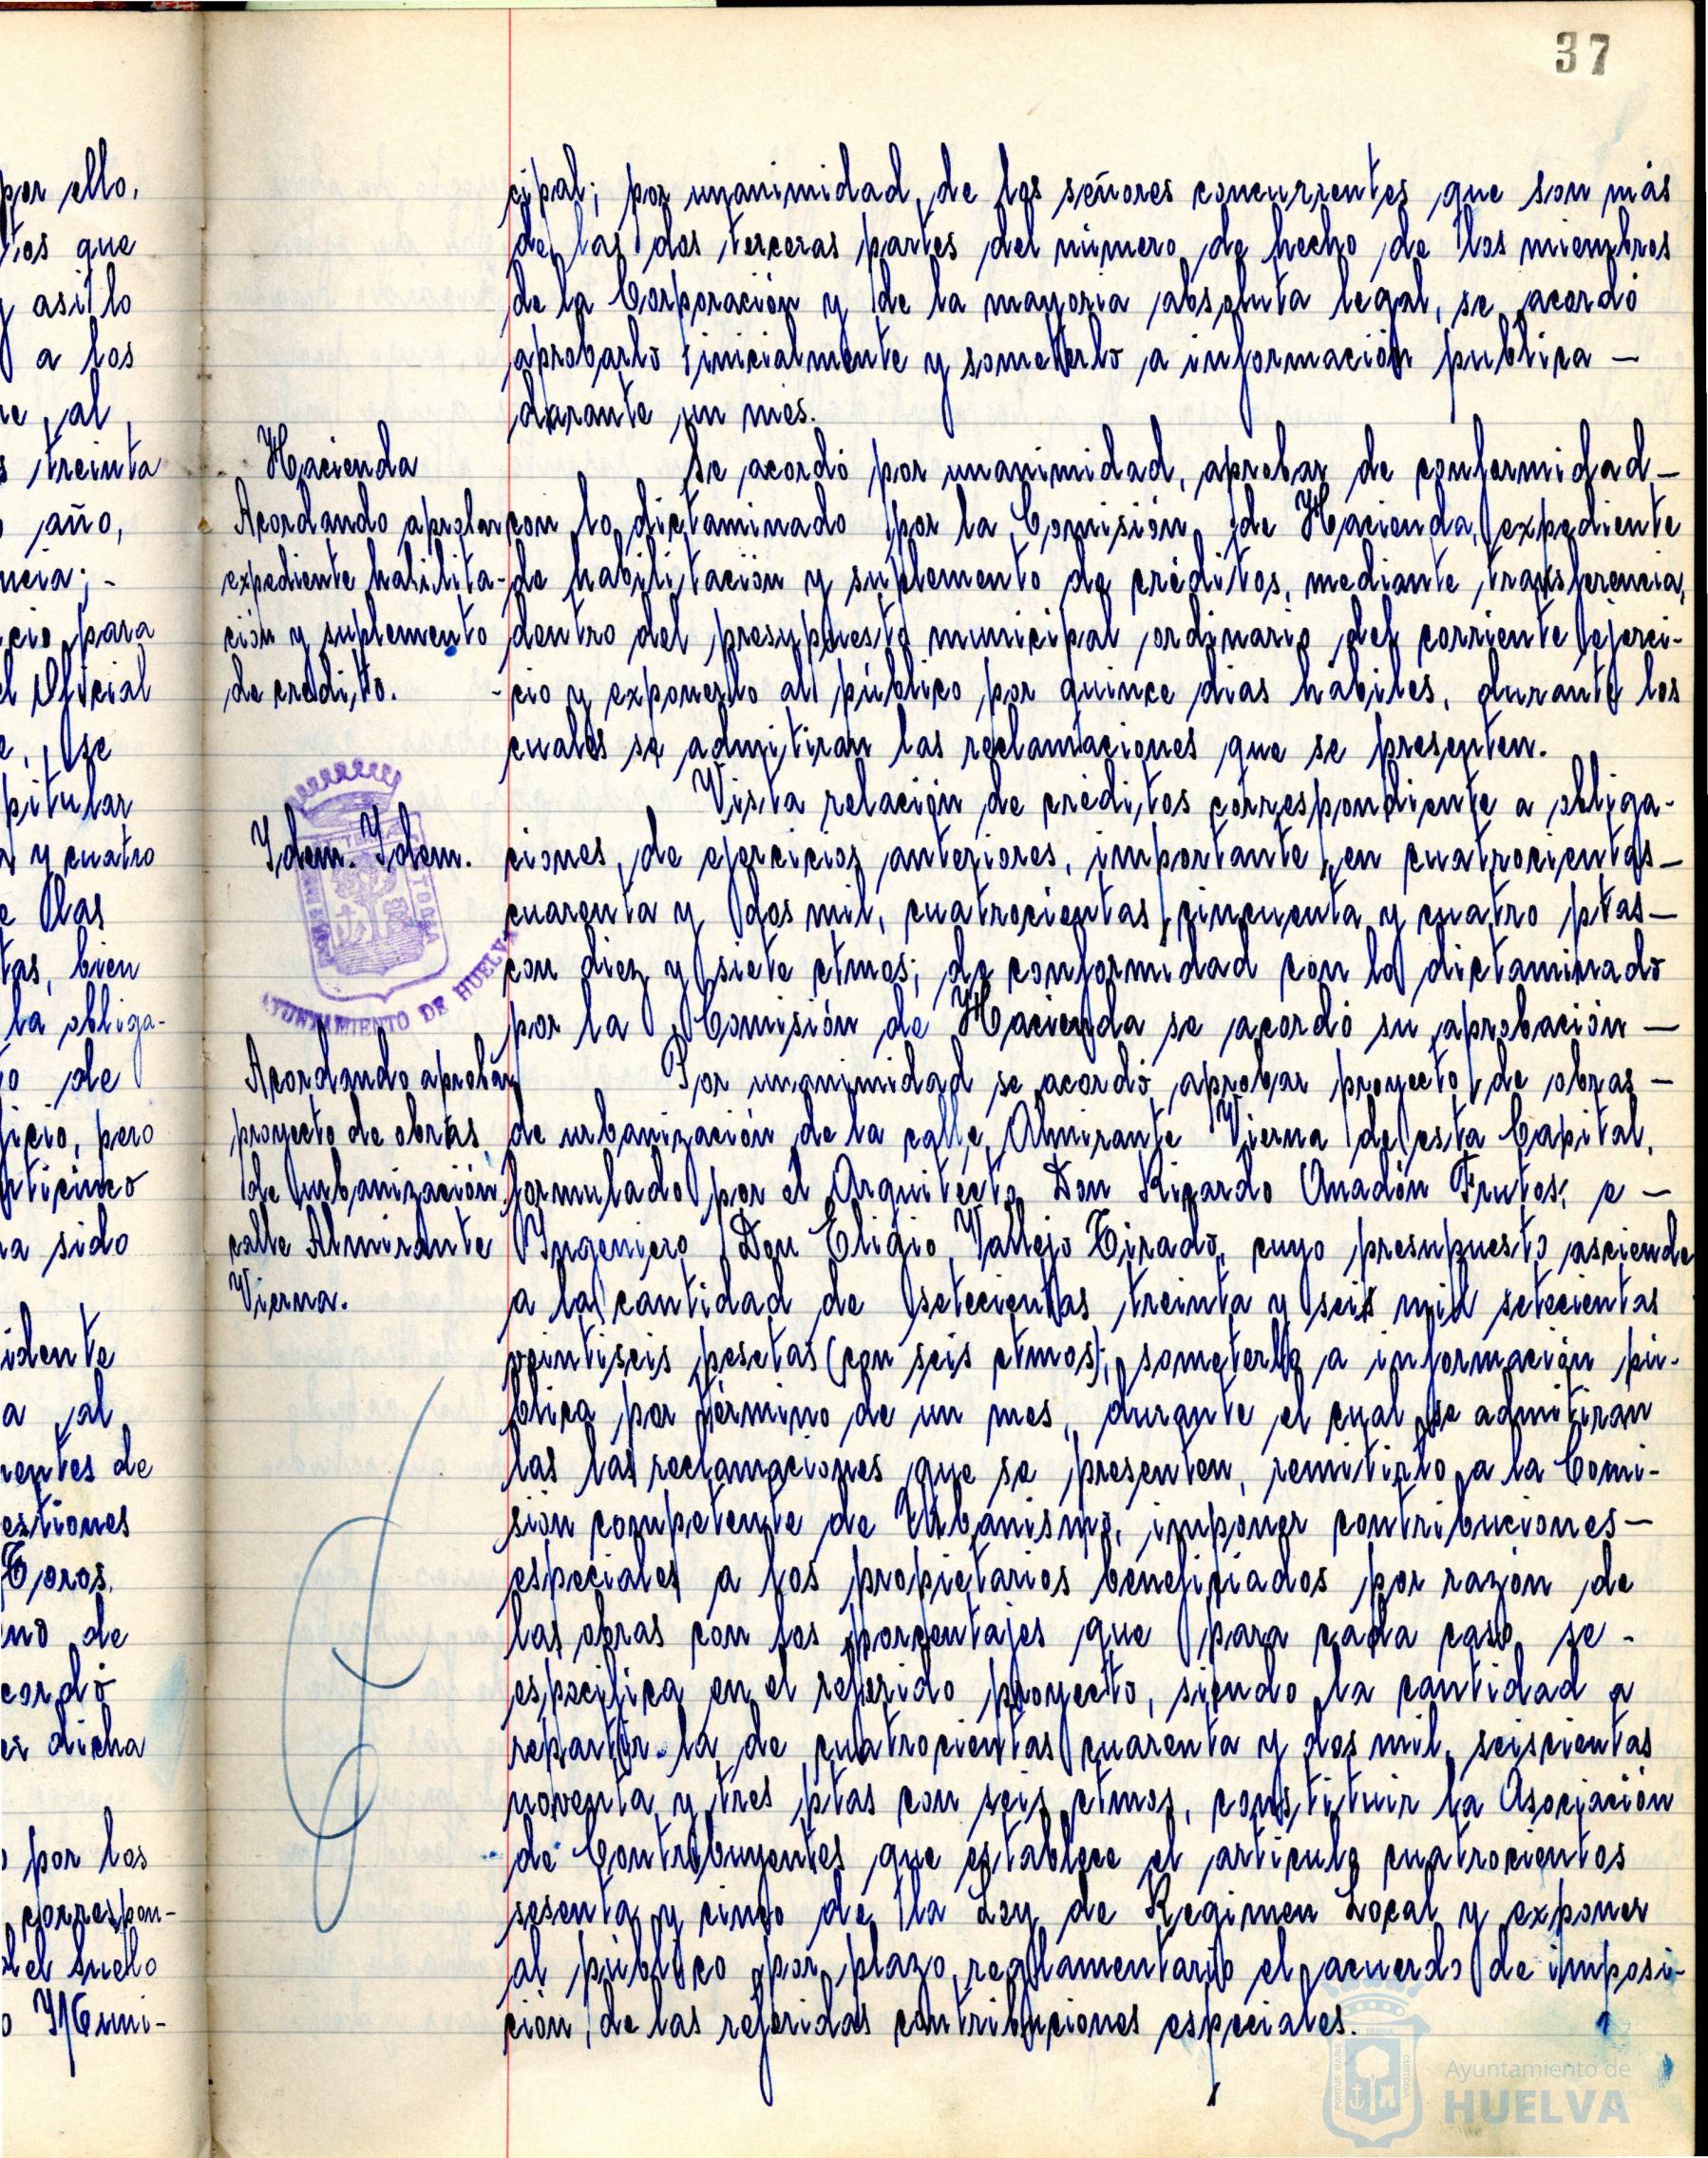 37
por ello,
tos que
y así lo
a los
e al
s treinta
año,
ncia; -
cio para
el Oficial
e, se
pitular
a y cuatro
e las
tas, bien
la obliga-
o de
ficio, pero
nticinco
ha sido
idente
a al
rentes de
estiones
Toros,
no de
cordó
er dicha
por los
correspon-
del suelo
o Muni-
cipal; por unanimidad de los señores concurrentes que son más
de las dos terceras partes del número de hecho de los miembros
de la Corporación y de la mayoría absoluta legal, se acordó
aprobarlo inicialmente y someterlo a información pública —
durante un mes.
Hacienda
Acordando aprobar
expediente habilita-
ción y suplemento
de credito.
Se acordó por unanimidad, aprobar de conformidad —
con lo dictaminado por la Comisión de Hacienda, expediente
de habilitación y suplemento de créditos, mediante transferencia,
dentro del presupuesto municipal ordinario del corriente ejerci-
-cio y exponerlo al público por quince dias habiles, durante los
cuales se admitiran las reclamaciones que se presenten.
Idem. Idem.
Vista relación de créditos correspondiente a obliga-
ciones de ejercicios anteriores, importante en cuatrocientas —
cuarenta y dos mil, cuatrocientas cincuenta y cuatro ptas —
con diez y siete ctmos; de conformidad con lo dictaminado
por la Comisión de Hacienda se acordó su aprobación —
AYUNTAMIENTO DE HUELVA
Acordando aprobar
proyecto de obras
de urbanización
calle Almirante
Vierna.
Por unanimidad se acordó aprobar proyecto de obras —
de urbanización de la calle Almirante Vierna de esta Capital,
formulado por el Arquitecto Don Ricardo Anadón Frutos, e —
Ingeniero Don Eligio Vallejo Tirado, cuyo presupuesto asciende
a la cantidad de setecientas treinta y seis mil setecientas
veintiseis pesetas (con seis ctmos); someterlo a información pú-
blica por término de un mes, durante el cual se admitiran
las las reclamaciones que se presenten, remitirlo a la Comi-
sión competente de Urbanismo, imponer contribuciones —
especiales a los propietarios beneficiados por razón de
las obras con los porcentajes que para cada caso se -
especifica en el referido proyecto, siendo la cantidad a
repartir la de cuatrocientas cuarenta y dos mil, seiscientas
noventa y tres ptas con seis ctmos, constituir la Asociación
de Contribuyentes que establece el articulo cuatrocientos
sesenta y cinco de la Ley de Regimen Local y exponer
al público por plazo reglamentario el acuerdo de imposi-
ción de las referidas contribuciones especiales.
Ayuntamiento de
HUELVA